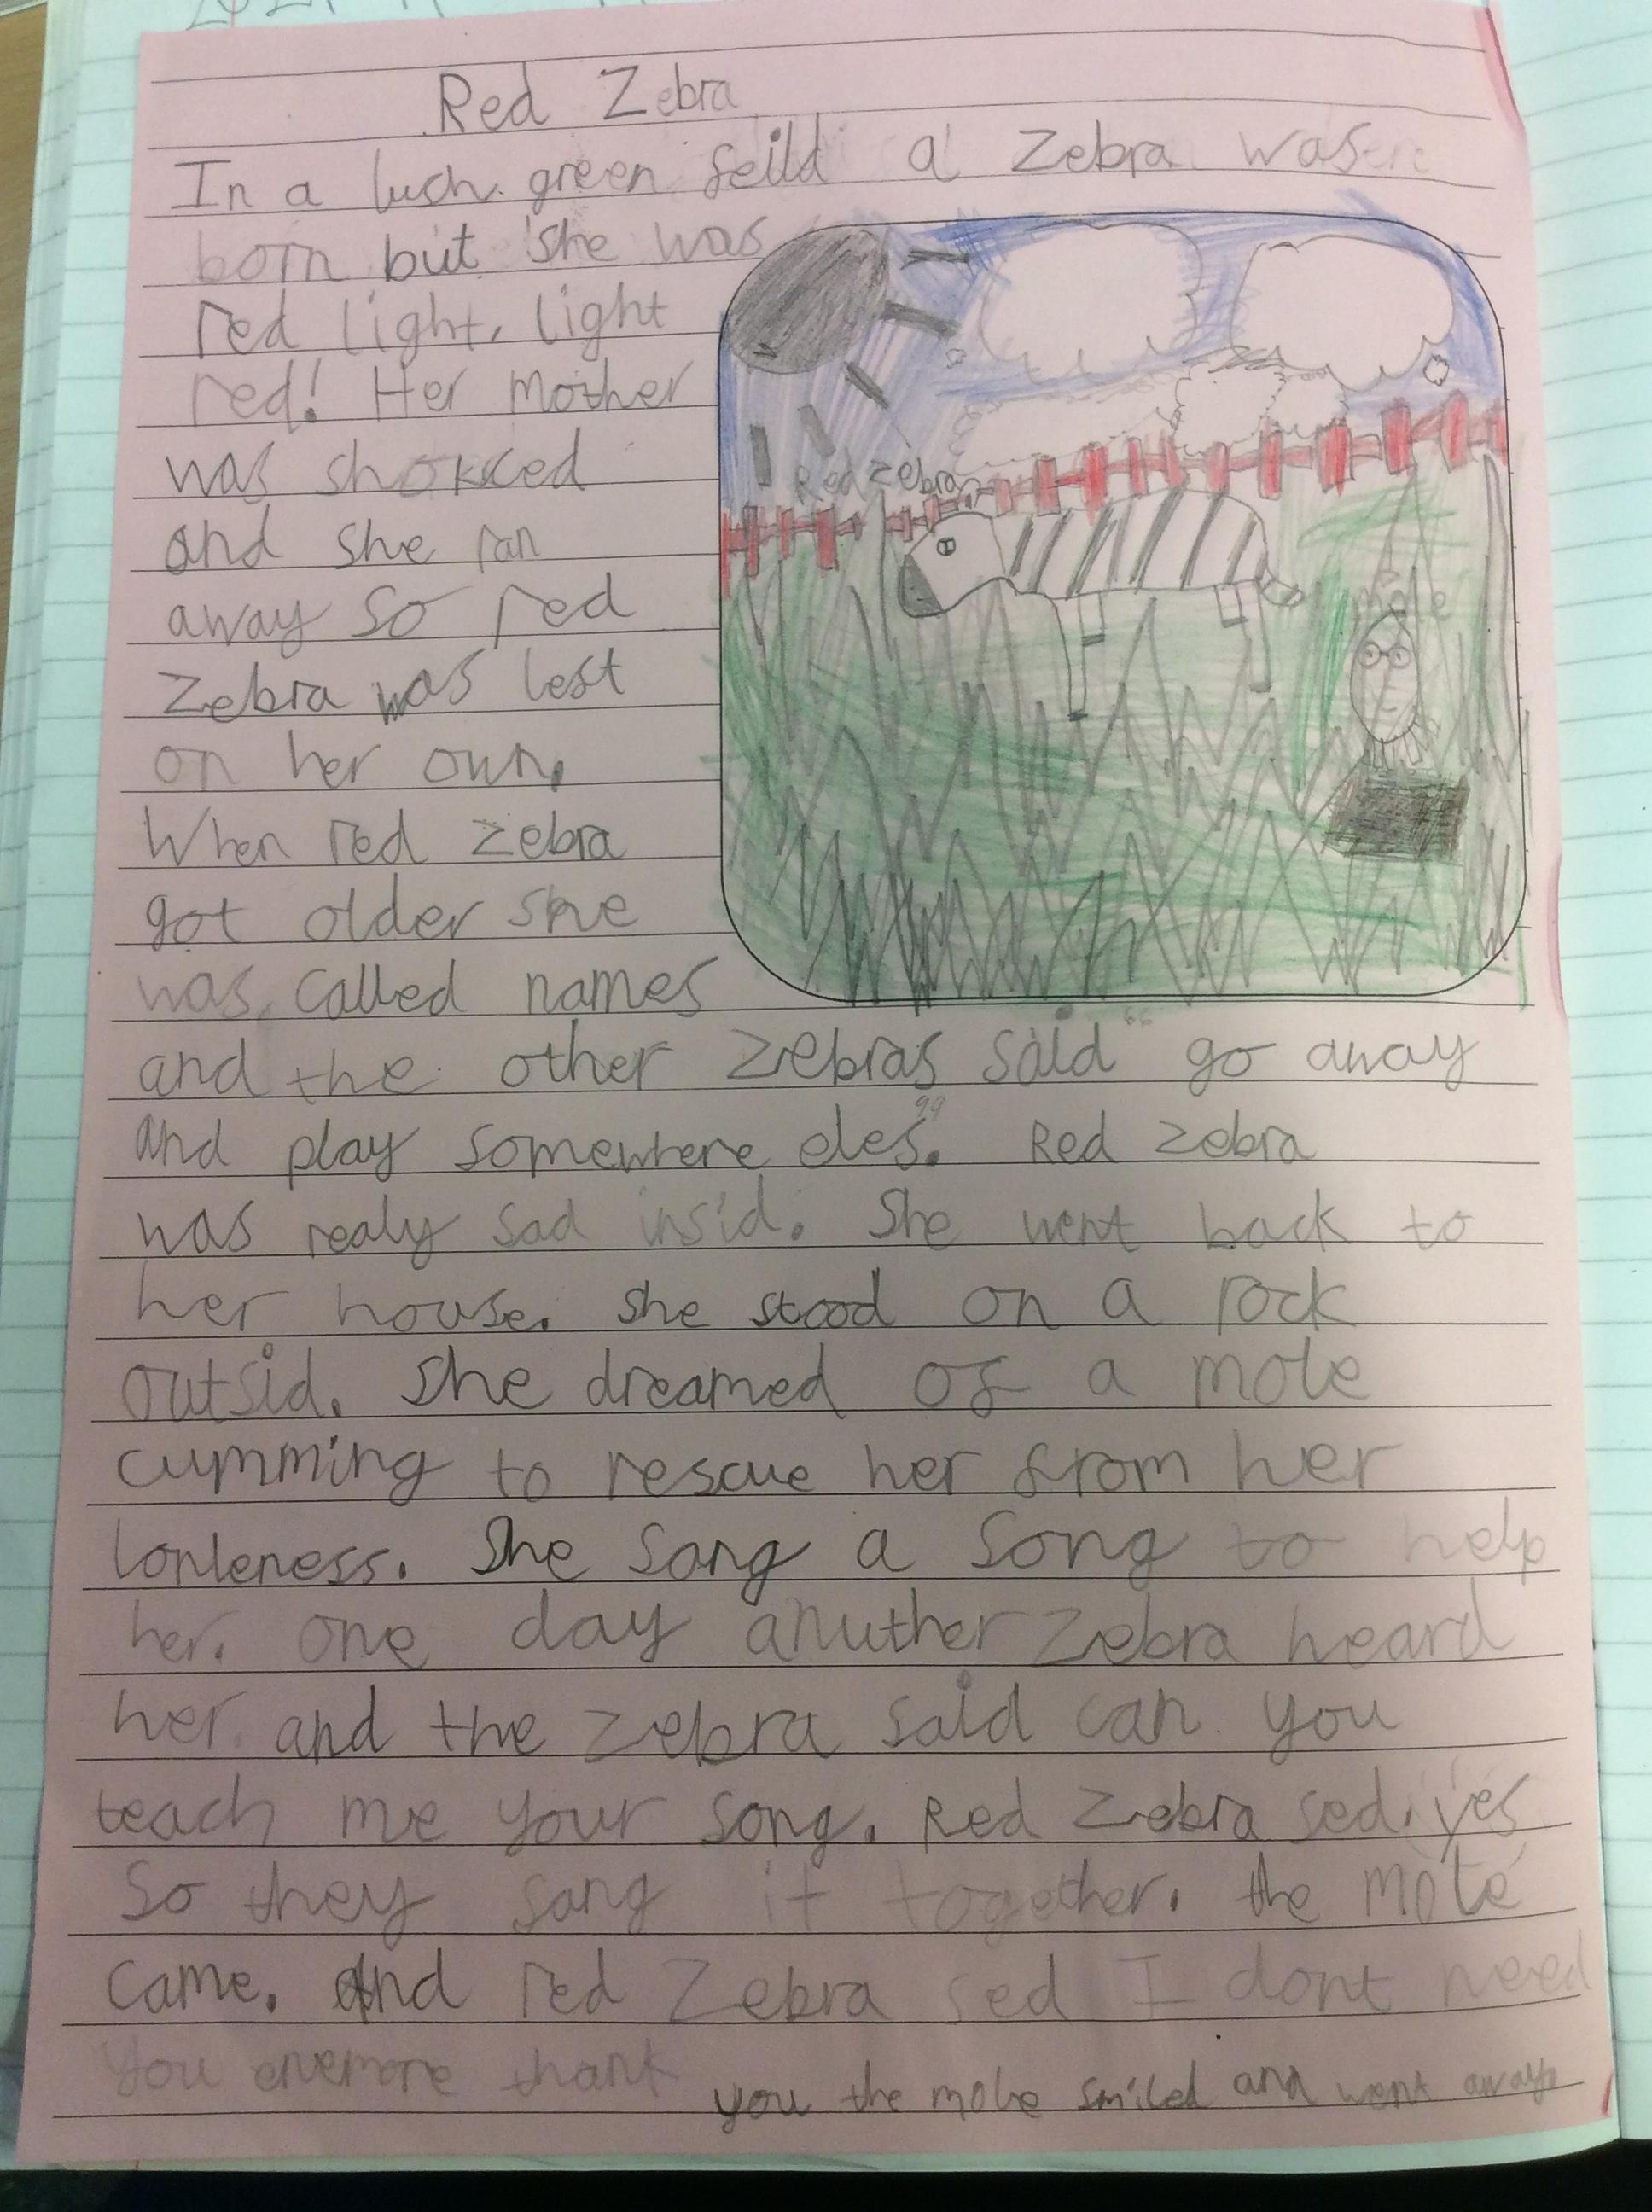 Red Zebra
In a lush green feild a Zebra was
born but she was
red light, light
red! Her mother
was shokked
and she ran
away so red
Zebra was left
on her own.
When red zebra
got older she
was called names
Red zebra
mole
and the other zebras said “go away
and play somewhere eles”. Red zebra
was realy sad insid. She went back to
her house. She stood on a rock
outsid. She dreamed of a mole
cumming to rescue her from her
lonleness. She sang a song to help
her. one day anuther zebra heard
her and the zebra said can you
teach me your song. Red Zebra sed yes
So they sang it together. the mole
came. And red Zebra sed I dont need
you enemore thank you the mole smiled and went away